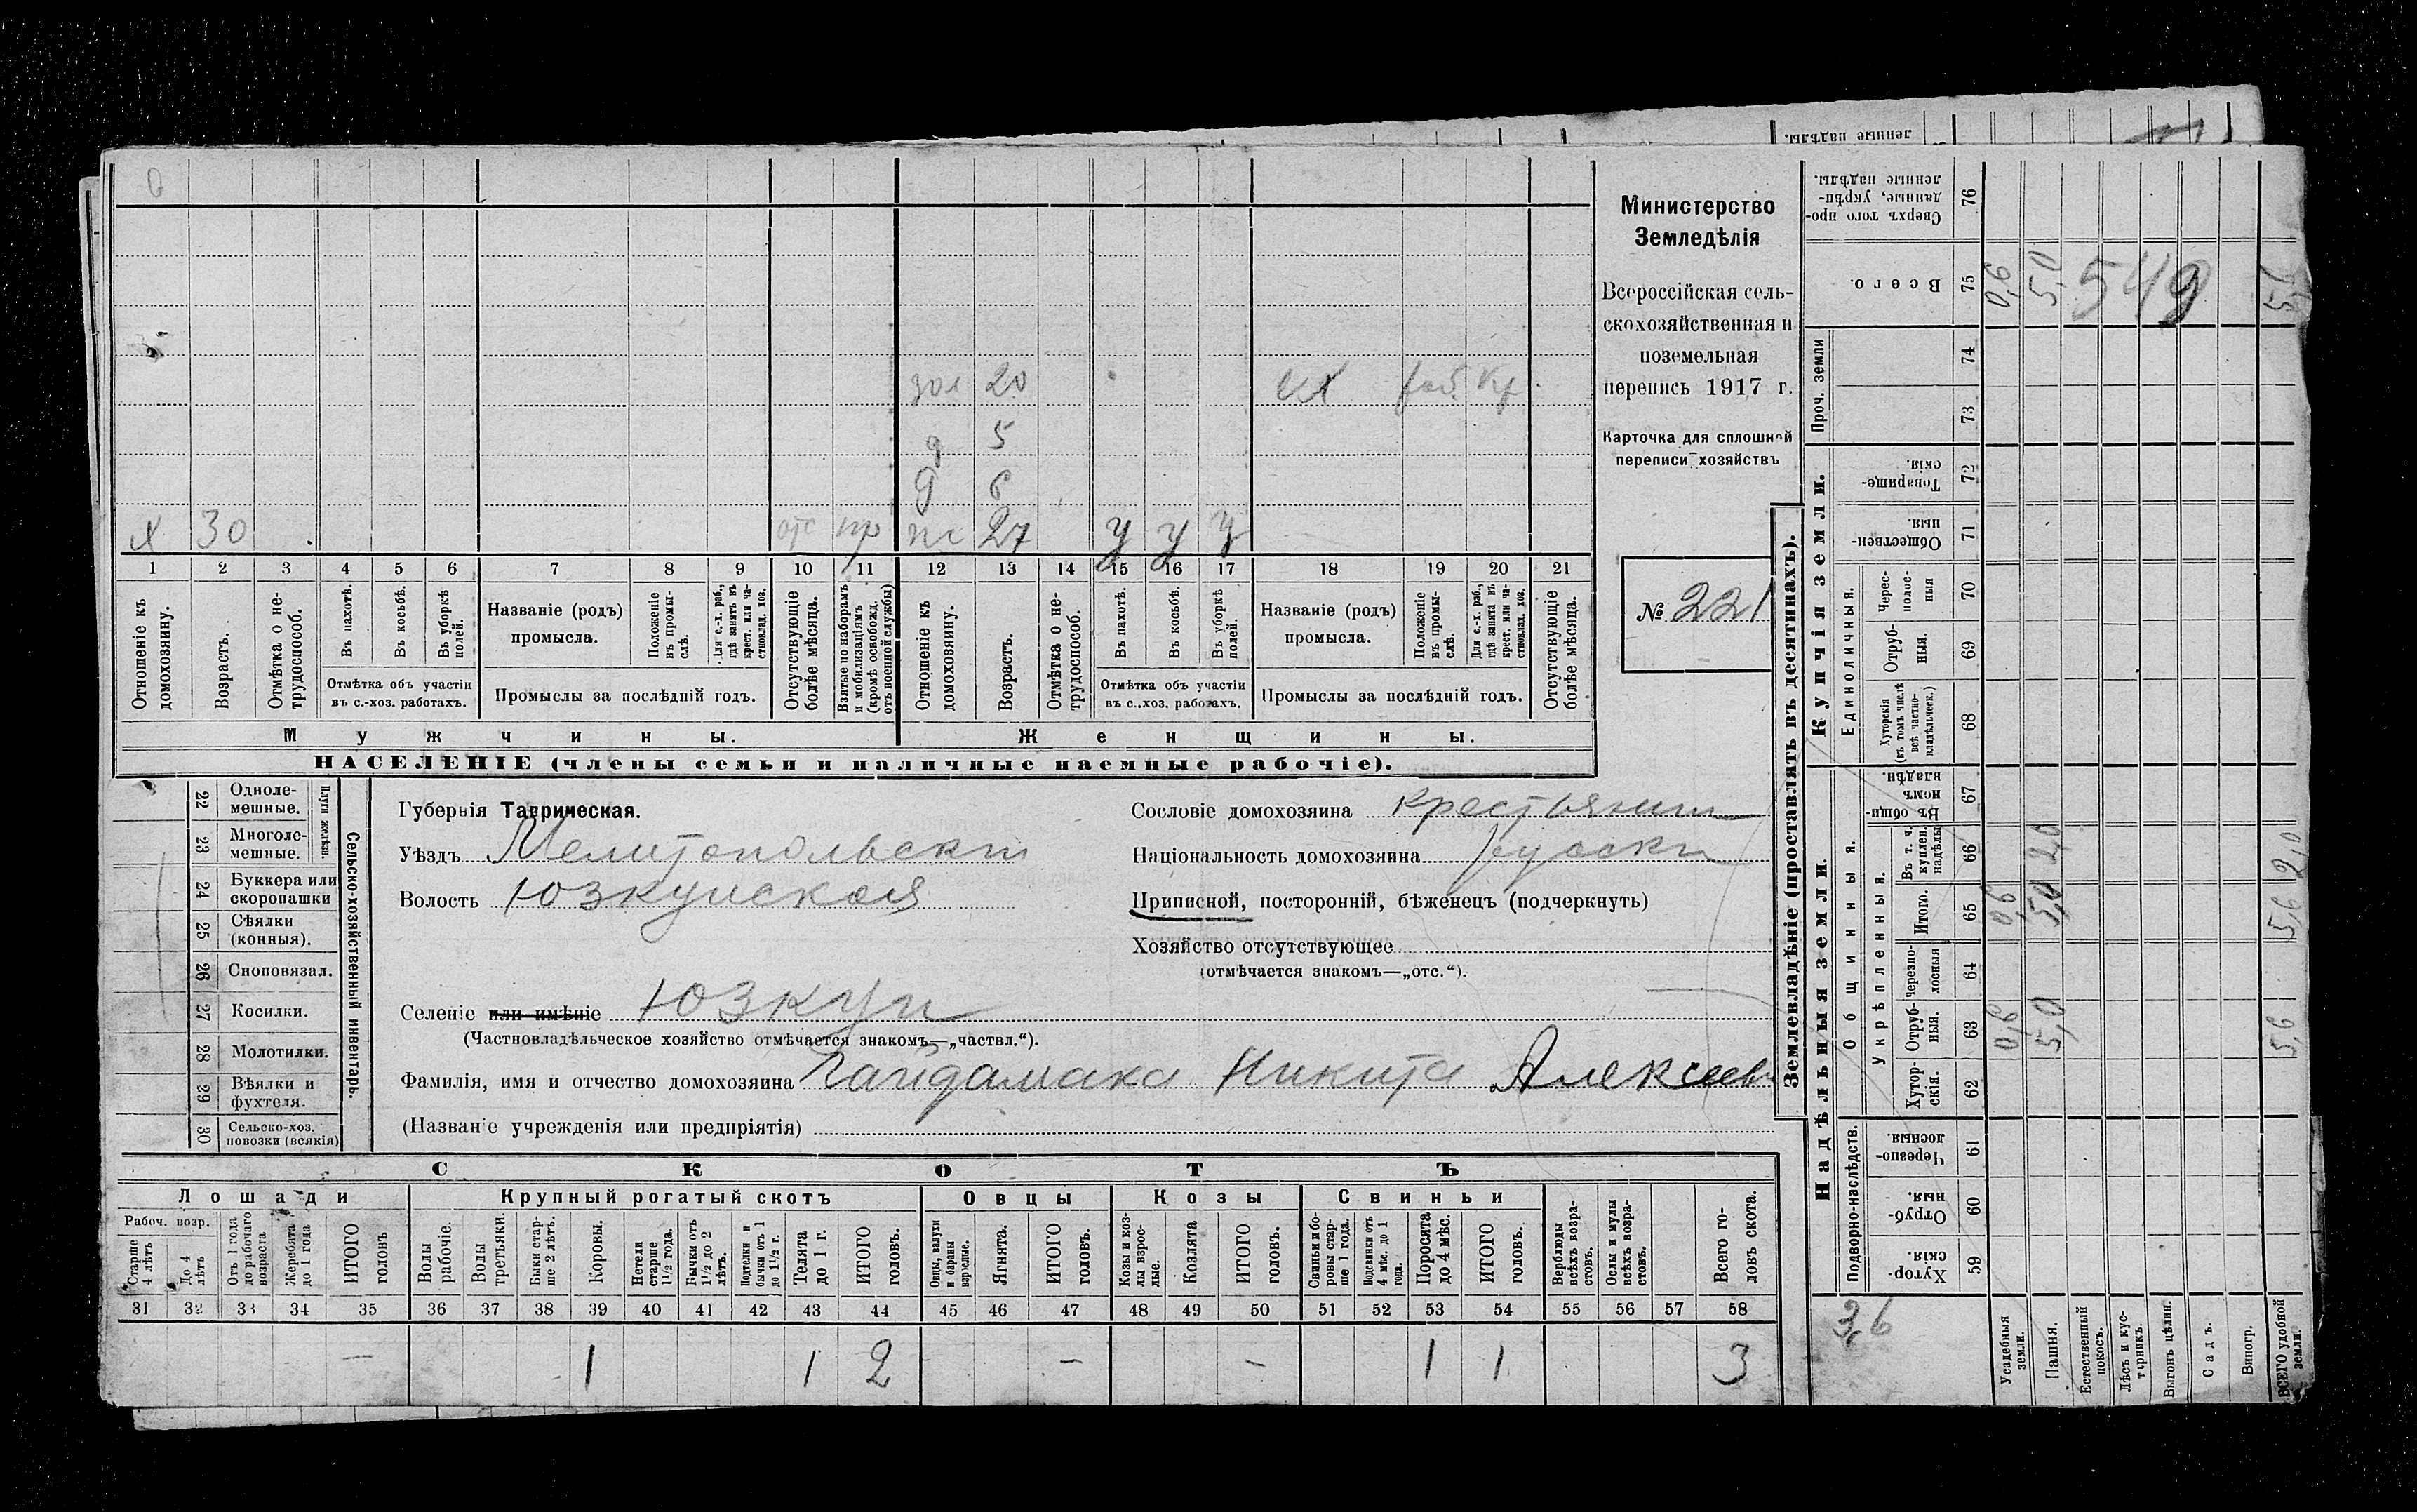 0
зол 20 сх раб. кр.
д 5
д 6
х 30 отс пр ж 27 у у у
1 2 3 4 5 6 7 8 9 10 11 12 13 14 15 16 17 18 19 20 21
Отношеніе къ домохозяину.
Возрастъ.
Отмѣтка о не-трудоспособ.
Въ пахотѣ.
Въ косьбѣ.
Въ уборкѣ полей.
Отмѣтка объ участіи
въ с.-хоз. работахъ.
Названіе (родъ)
промысла.
Положеніе въ промы-слѣ.
Для с.-х. раб., гдѣ занятъ въ крест. или ча-стновлад. хоз.
Промыслы за послѣдній годъ.
Отсутствующіе болѣе мѣсяца.
Взятые по наборамъ и мобилизаціямъ (кромѣ освобожд. отъ военной службы)
Отношеніе къ домохозяину.
Возрастъ.
Отмѣтка о не-трудоспособ.
Въ пахотѣ.
Въ косьбѣ.
Въ уборкѣ полей.
Отмѣтка объ участіи
въ с..хоз. работахъ.
Названіе (родъ)
промысла.
Положеніе въ промы-слѣ.
Для с.-х. раб., гдѣ занята въ крест. или ча-стновлад. хоз.
Промыслы за послѣдній годъ.
Отсутствующіе болѣе мѣсяца.
Мужчины. Женщины.
НАСЕЛЕНІЕ (члены семьи и наличные наемные рабочіе).
Министерство
Земледѣлія
Всероссійская сель-
скохозяйственная и
поземельная
перепись 1917 г.
Карточка для сплошной
переписи хозяйствъ
№ 221
Сельско-хозяйственный инвентарь.
Плуги желѣзн.
22 Одноле-
мешные.
23 Многоле-
мешные.
24 Буккера или
скоропашки
25 Сѣялки
(конныя).
26 Сноповязал.
27 Косилки.
28 Молотилки.
29 Вѣялки и
фухтеля.
30 Сельско-хоз.
повозки (всякія)
Губернія Таврическая.
Уѣздъ Мелитопольскій
Волость Юзкуйская
Селеніе или имѣніе Юзкуи
(Частновладѣльческое хозяйство отмѣчается знакомъ—„частвл.“).
Фамилія, имя и отчество домохозяина Гайдамака Никита Алексеев
(Названіе учрежденія или предпріятія)
Сословіе домохозяина крестьянин
Національность домохозяина русски
Приписной, посторонній, бѣженецъ (подчеркнуть)
Хозяйство отсутствующее
(отмѣчается знакомъ—„отс.“).
СКОТЪ
Лошади Крупный рогатый скотъ Овцы Козы Свиньи
Рабоч. возр.
Старше 4 лѣтъ
До 4 лѣтъ
Отъ 1 года до рабочаго возраста
Жеребята до 1 года
ИТОГО головъ
Волы рабочіе.
Волы третьяки.
Быки стар-ше 2 лѣтъ.
Коровы.
Нетели старше 1½ года.
Бычки отъ 1½ до 2 лѣтъ.
Подтелки и бычки отъ 1 до 1½ г.
Телята до 1 г.
ИТОГО головъ.
Овцы, валухи и бараны взрослые.
Ягнята.
ИТОГО головъ.
Козы и коз-лы взрос-лые.
Козлята
ИТОГО головъ.
Свиньи и бо-ровы стар-ше 1 года.
Подсвинки отъ 4 мѣс. до 1 года.
Поросята до 4 мѣс.
ИТОГО головъ.
Верблюды всѣхъ возра-стовъ.
Ослы и мулы всѣхъ возра-стовъ.
Всего го-ловъ скота.
31 32 33 34 35 36 37 38 39 40 41 42 43 44 45 46 47 48 49 50 51 52 53 54 55 56 57 58
— 1 1 2 — — 1 1 3
Землевладѣніе (проставлять въ десятинахъ).
Надѣльныя земли.
Купчія земли.
Проч. земли
Подворно-наслѣдств.
Общинныя.
Укрѣпленныя.
Единоличныя.
Сверхъ того про-данные, укрѣп-ленные надѣлы. 76
Всего. 75 0,6 5,0 549 5,6
74
73
Товарище-скія 72
Обществен-ныя. 71
Черес-полос-ныя 70
Отруб-ныя. 69
Хуторскія (въ томъ числѣ всѣ частно-владѣльческ.) 68
Въ общи-номъ владѣн. 67
Въ т. ч. куплен. надѣлы 66 2,0 2,0
Итого. 65 0,6 5,0 5,6
Черезпо-лосныя 64
Отруб-ныя. 63 0,6 5,0 5,6
Хутор-скія. 62
Черезпо-лосныя. 61
Отруб-ныя. 60
Хутор-скія. 59
3,6
Усадебныя земли.
Пашня.
Естественный покосъ.
Лѣсъ и кус-тарникъ.
Выгонъ цѣлин.
Садъ.
Виногр.
ВСЕГО удобной земли.
ленные надѣлы.